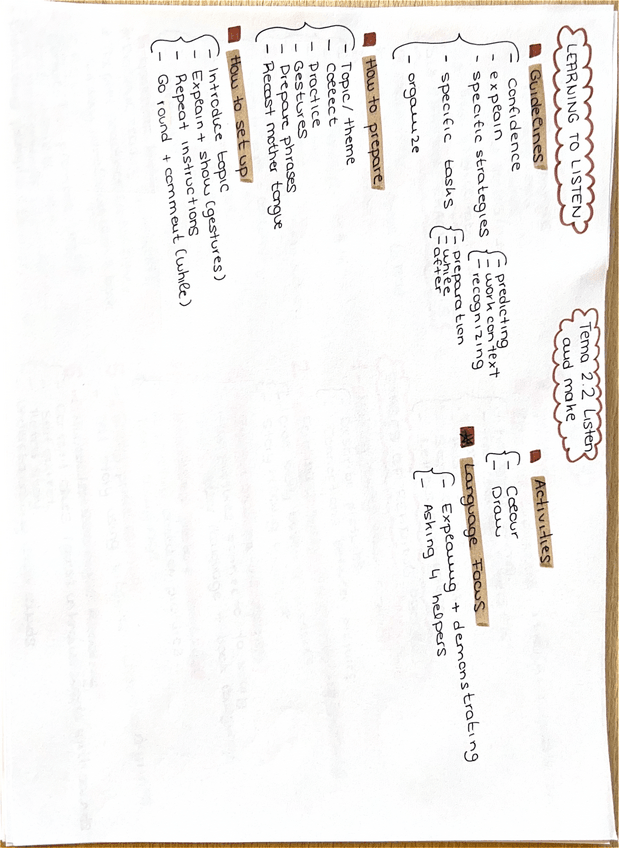 LEARNING TO LISTEN
Guidelines
- Confidence
- explain
- specific strategies
- predicting
- work context
- recognizing
- specific tasks
- preparation
- while
- after
- organize
How to prepare
- Topic / theme
- Collect
- Practice
- Gestures
- Prepare phrases
- Recast mother tongue
How to set up
- Introduce topic
- Explain + show (gestures)
- Repeat instructions
- Go round + comment (while)
Tema 2.2 Listen
and make
Activities
- Colour
- Draw
Language Focus
- Explaining + demonstrating
- Asking 4 helpers